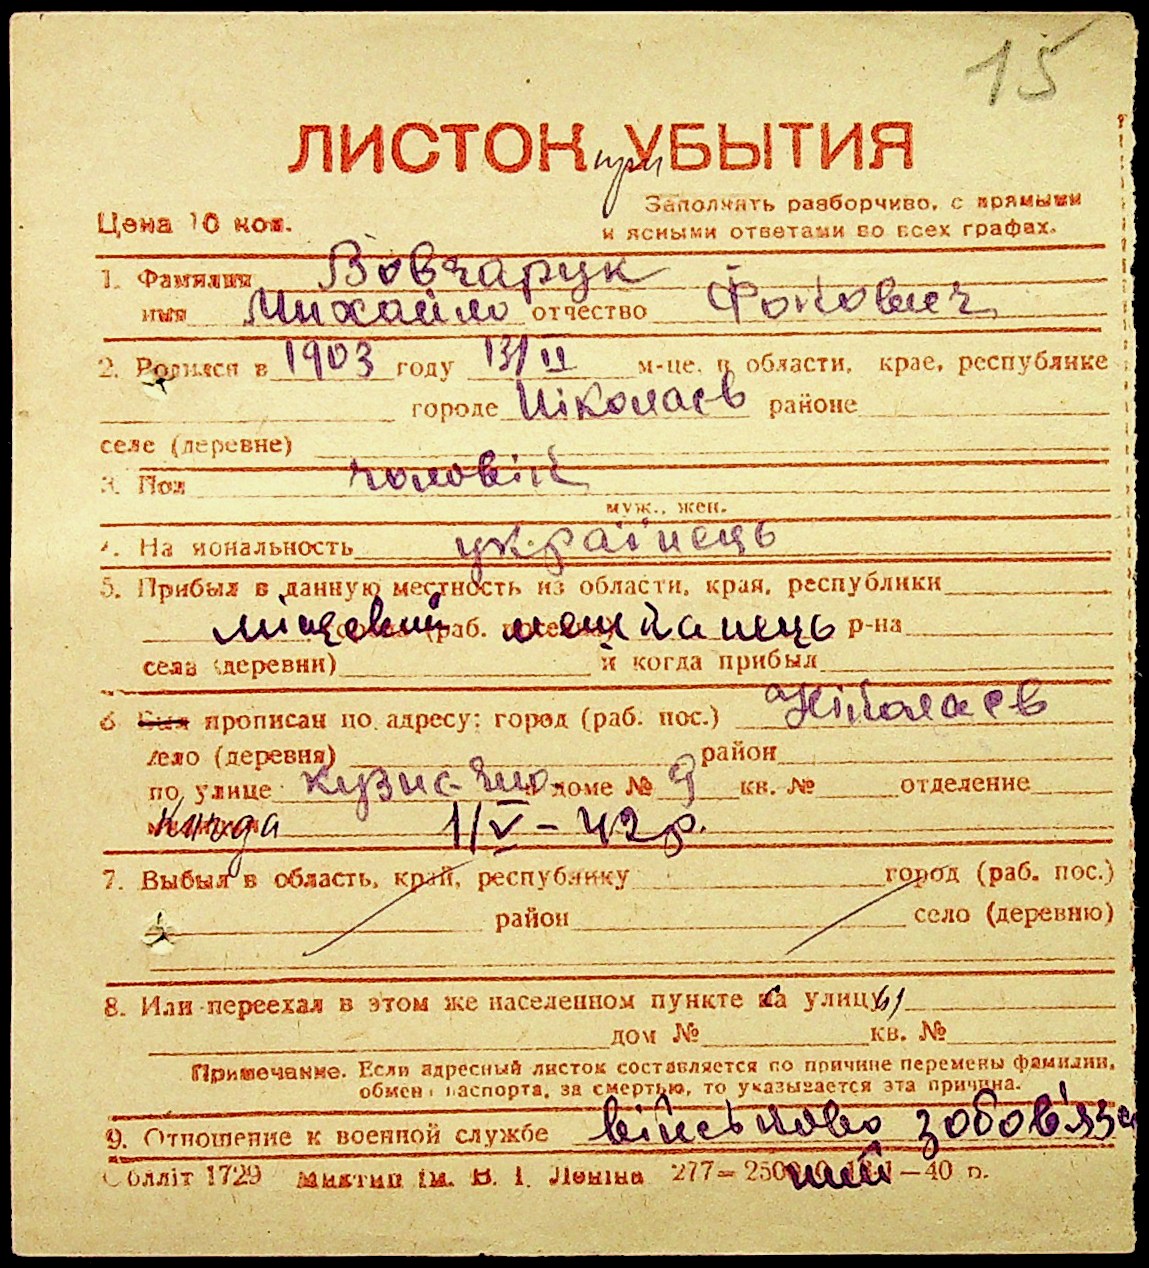 15
ЛИСТОК при УБЫТИЯ
Заполнять разборчиво, с прямыми
Цена 10 коп.
и ясными ответами во всех графах.
1. Фамилия Вовчарук
имя Михайло отчество Фокович
2. Родился в 1903 году 13/II м-це, в области, крае, республике
городе Ніколаєв районе
селе (деревне)
3. Пол чоловік
муж., жен.
4. Национальность українець
5. Прибыл в данную местность из области, края, республики
місцевий мешканець (раб. р-на
села (деревни) и когда прибыл
6 Был прописан по адресу: город (раб. пос.) Ніколаєв
село (деревня) район
по улице доме № 9 кв. № отделение
1/V – 42 р.
7. Выбыл в область, край, республику город (раб. пос.)
район село (деревню)
8. Или переехал в этом же населенном пункте на улицу
дом № кв. №
Примечание. Если адресный листок составляется по причине перемены фамилии,
обмена паспорта, за смертью, то указывается эта причина.
9. Отношение к военной службе військово зобов'яза
ний
Обллiт 1729 Миктип ім. В. І. Леніна 277— —40 р.